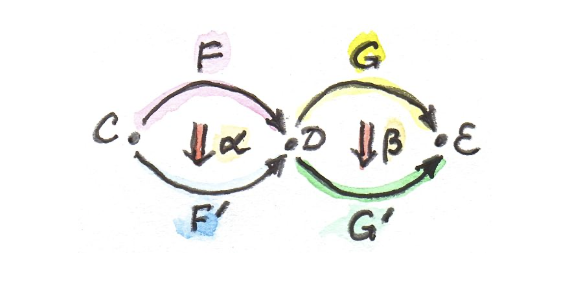 F G
C α D β E
F′ G′